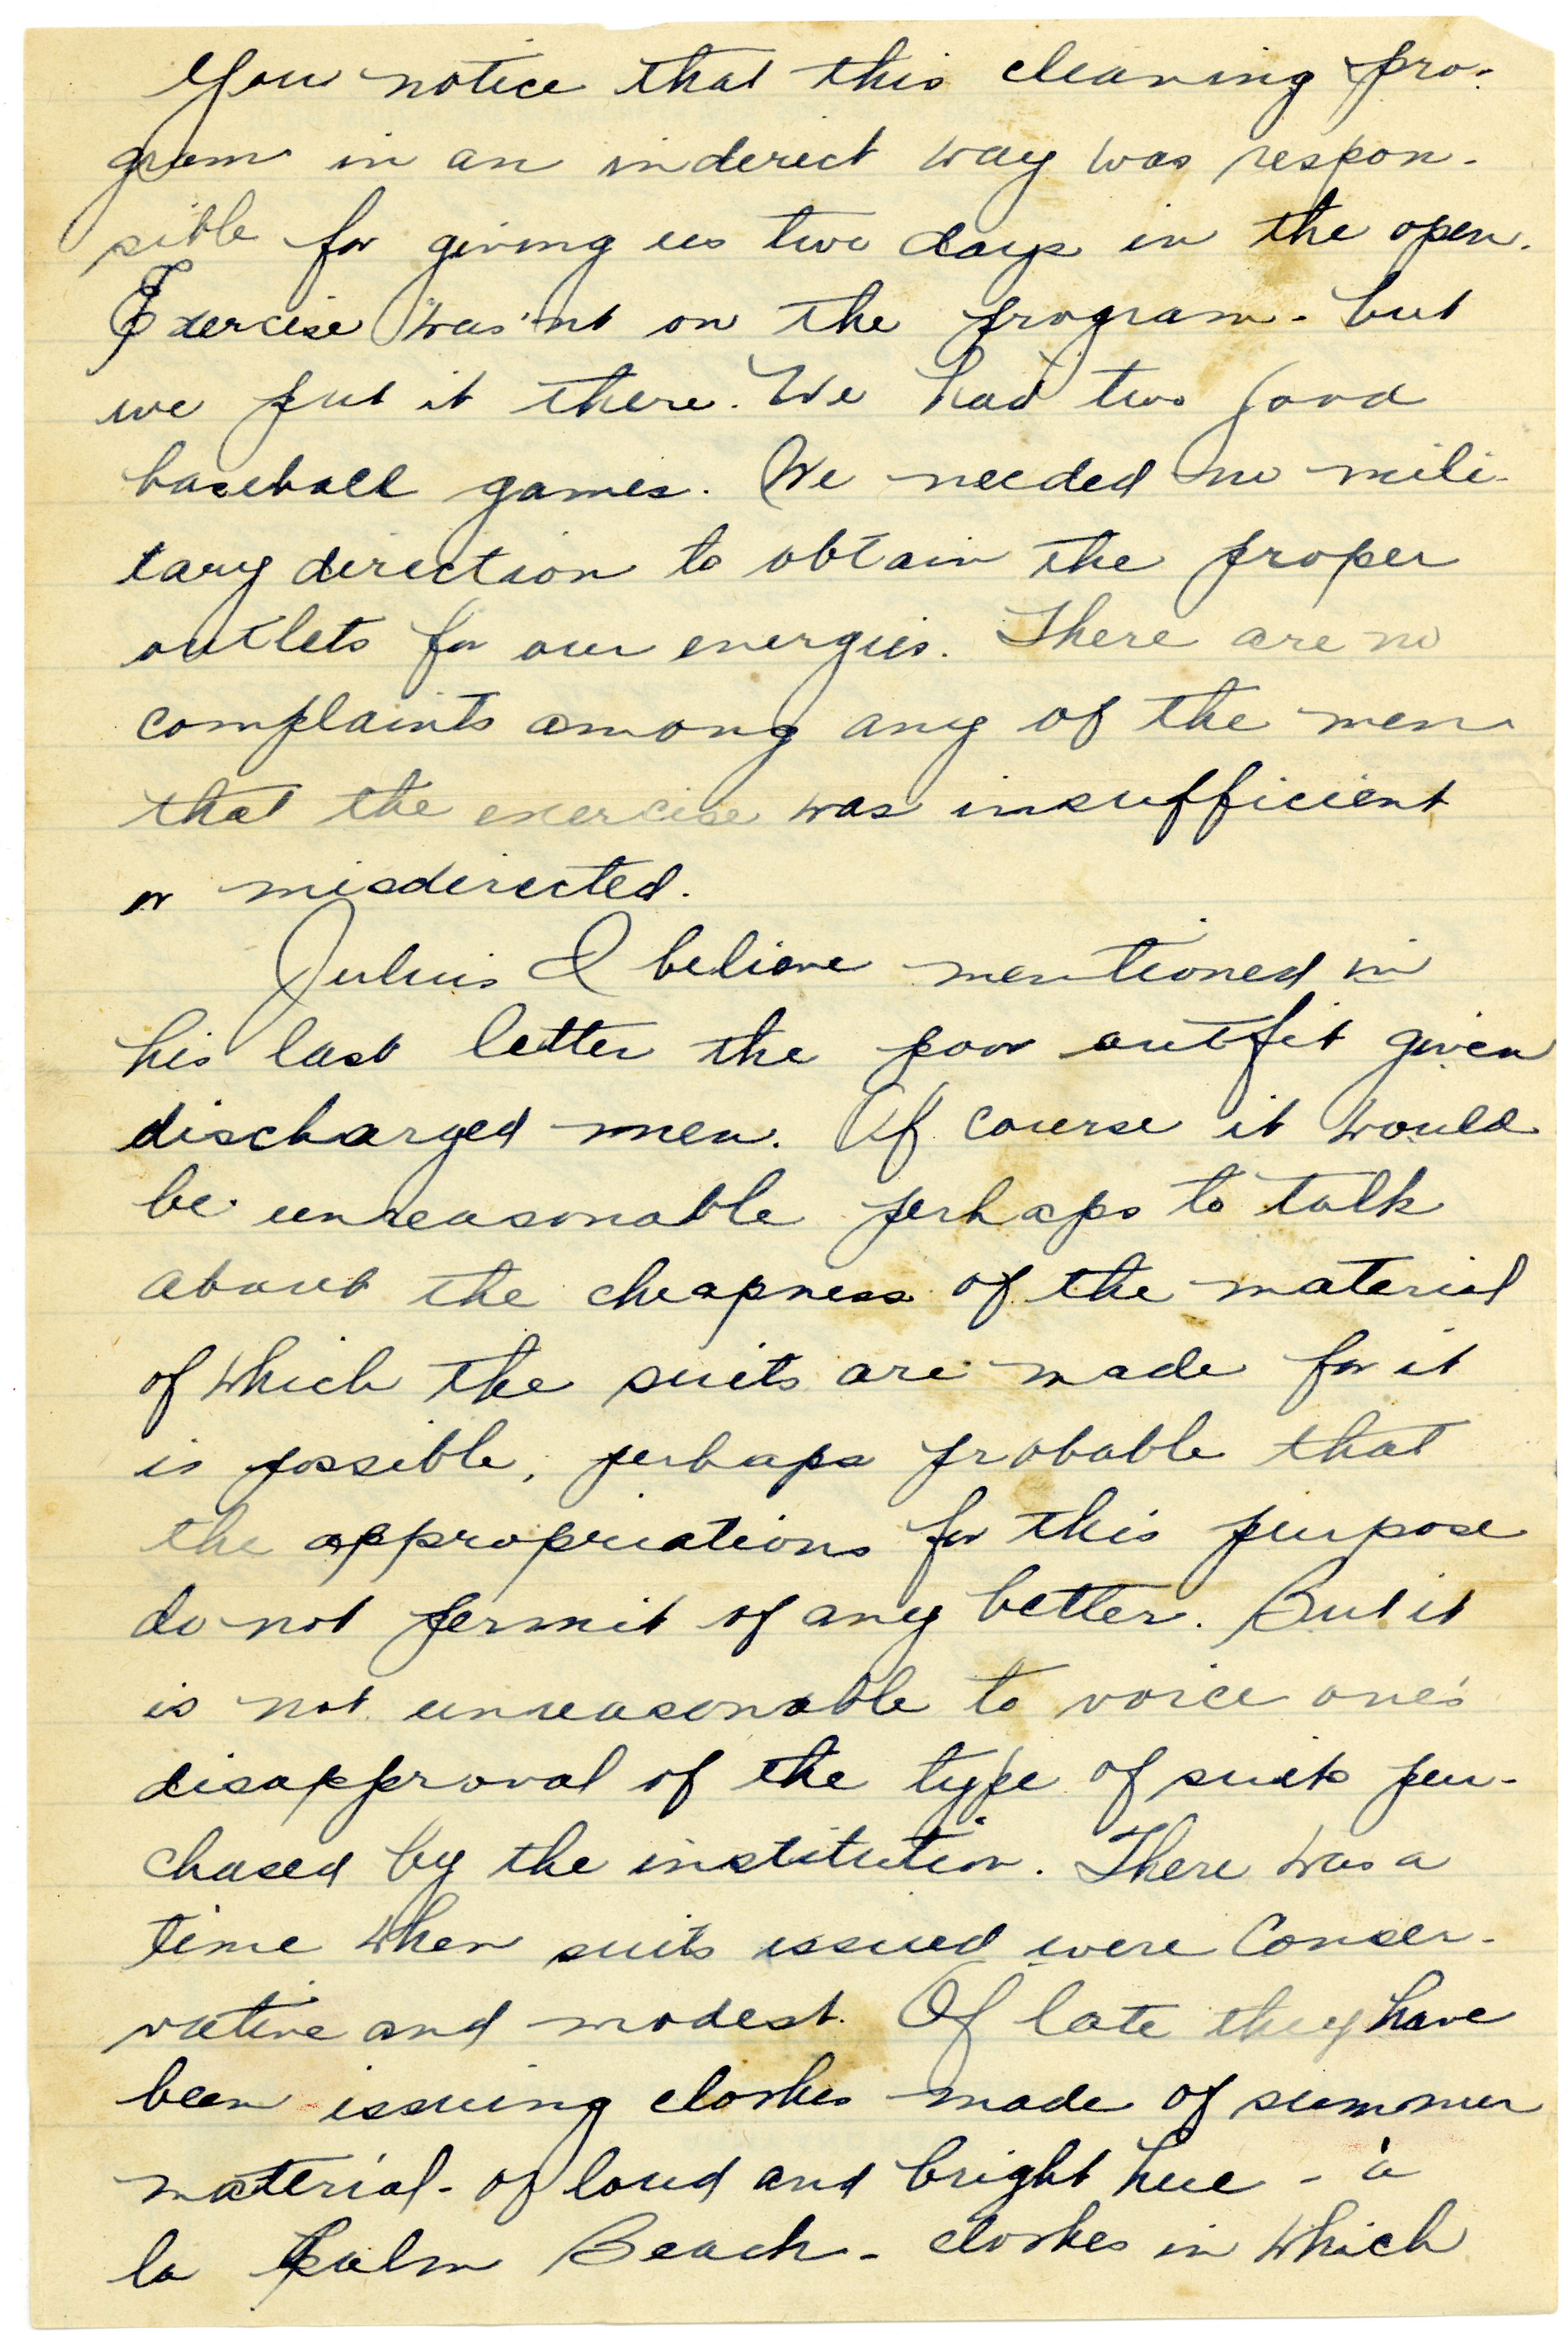 You notice that this cleaning pro-
gram in an inderect way was respon-
sible for giving us two days in the open.
Exercise was'nt on the program - but
we put it there. We had two good
baseball games. We needed no mili-
tary direction to obtain the proper
outlets for our energies. There are no
complaints among any of the men
that the exercise was insufficient
or misdirected.
Julius I believe mentioned in
his last letter the poor outfit given
discharged men. Of course it would
be unreasonable perhaps to talk
about the cheapness of the material
of which the suits are made for it
is possible, perhaps probable that
the appropriations for this purpose
do not permit of any better. But it
is not unreasonable to voice one's
disapproval of the type of suits pur-
chased by the institution. There was a
time when suits issued were conser-
vative and modest. Of late they have
been issuing clothes made of summer
material - of loud and bright hue - à
la Palm Beach - clothes in which